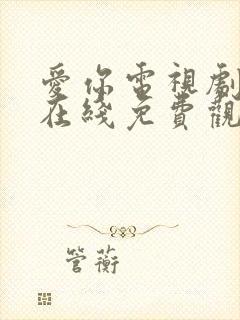 愛你電視劇
在綫免費觀
管蘅